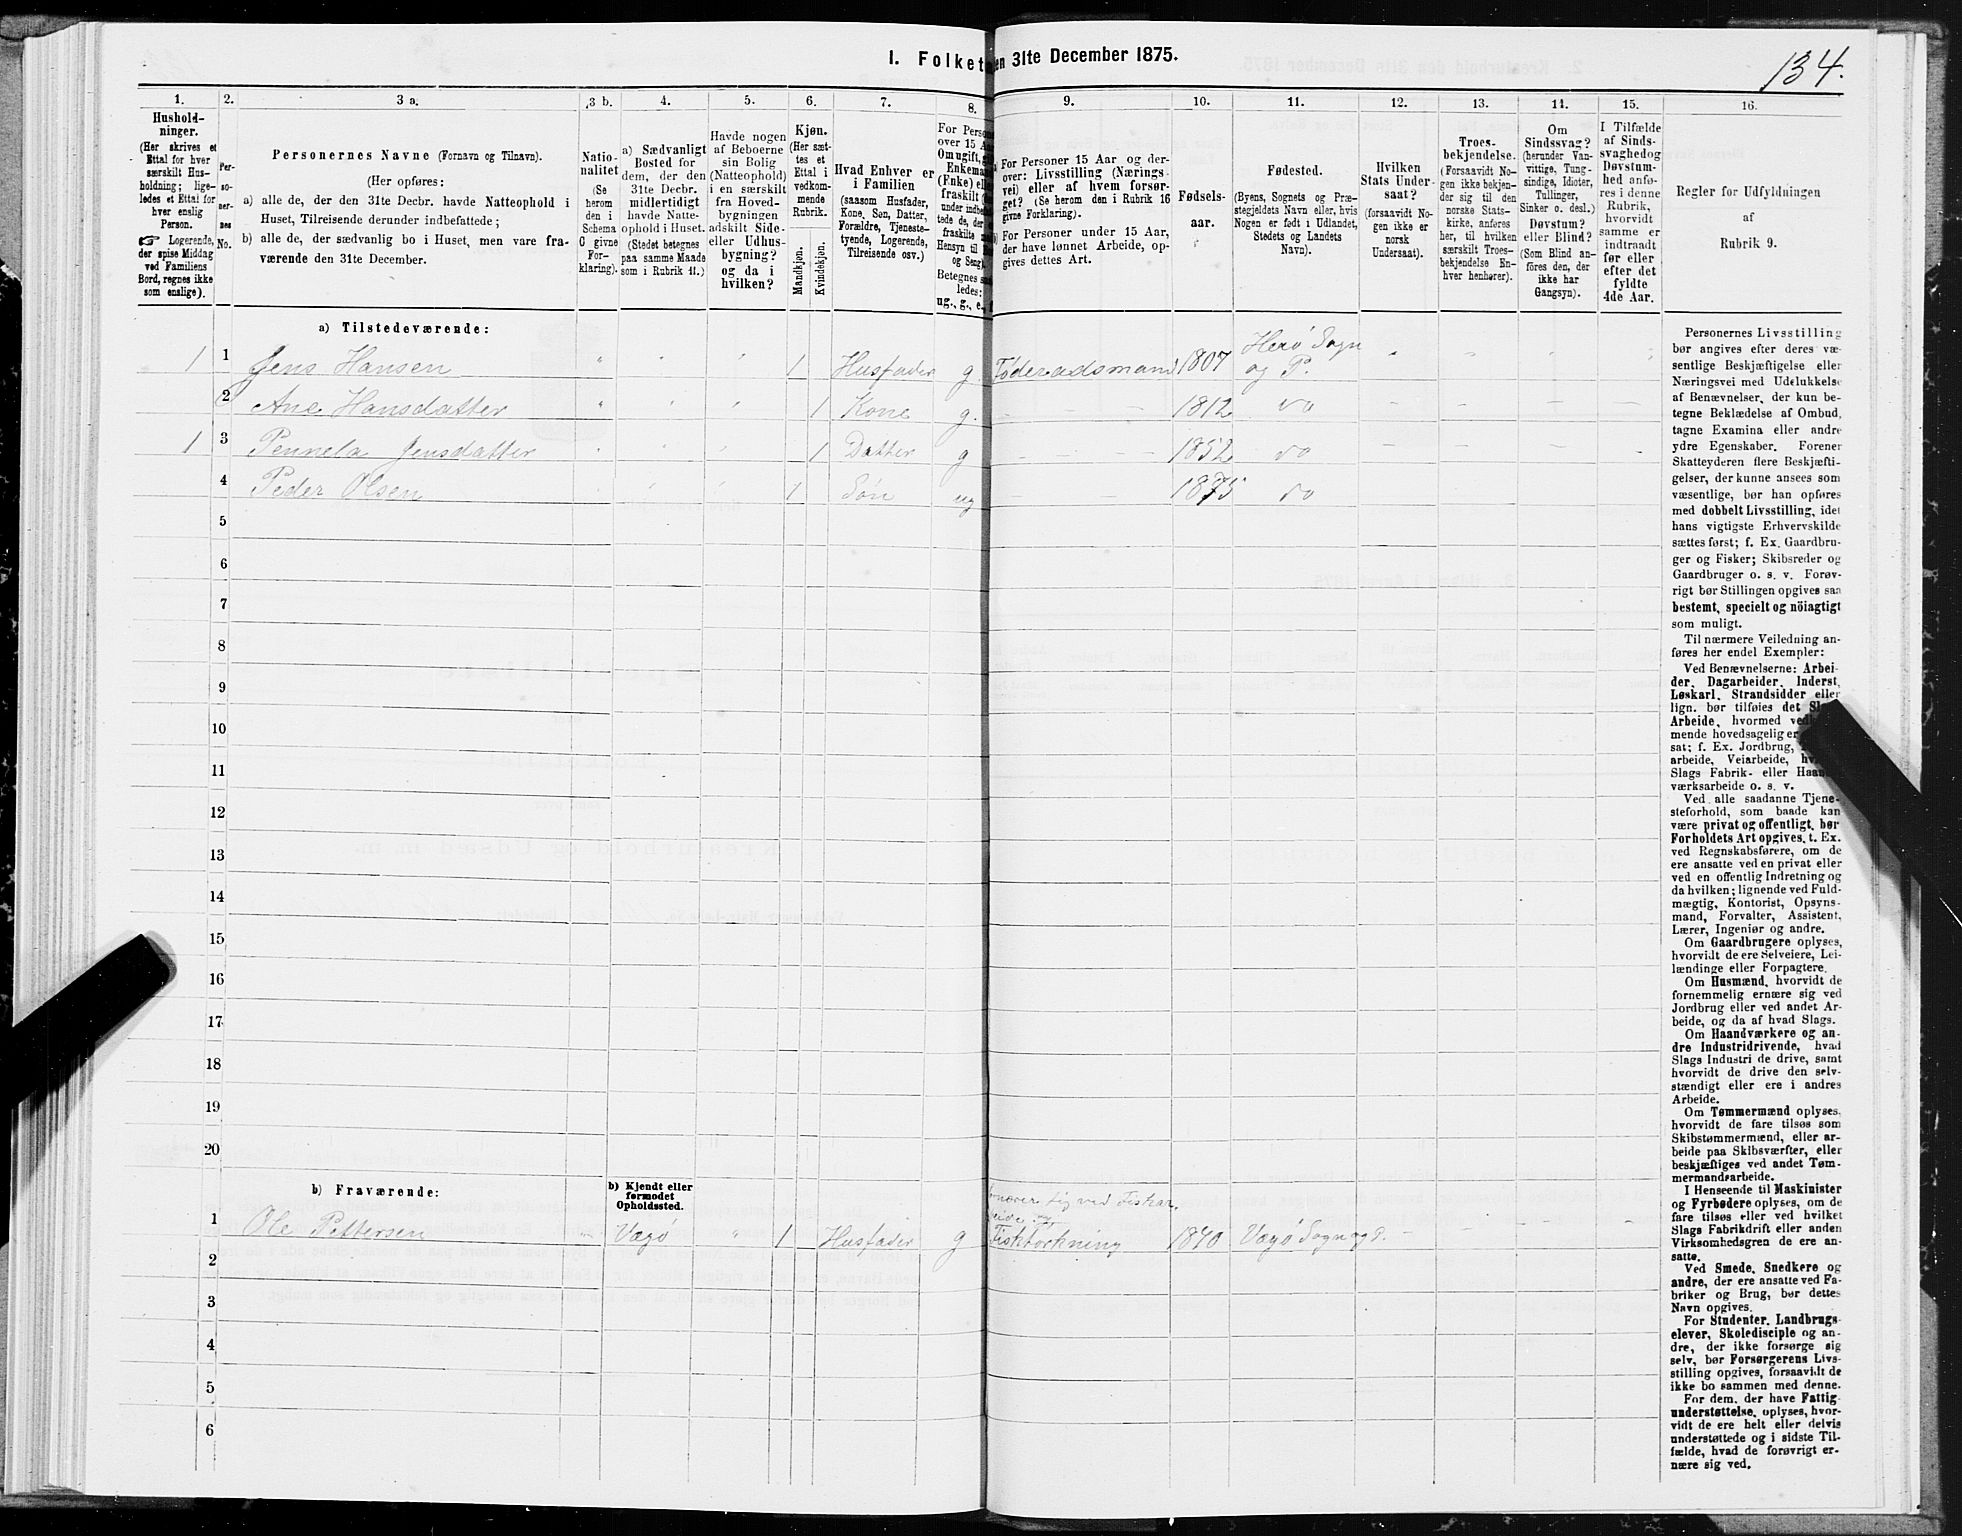 134.
I. Folket en 31te December 1875.
1.
Hushold-
ninger.
(Her skrives et
Ettal for hver
særskilt Hus-
holdning; lige-
ledes et Ettal for
hver enslig
Person.
☞ Logerende,
der spise Middag
ved Familiens
Bord, regnes ikke
som enslige).
2.
Per-
so-
ner-
nes
No.
3 a.
Personernes Navne (Fornavn og Tilnavn).
(Her opføres:
a) alle de, der den 31te Decbr. havde Natteophold i
Huset, Tilreisende derunder indbefattede;
b) alle de, der sædvanlig bo i Huset, men vare fra-
værende den 31te December.
3 b.
Natio-
nalitet
(Se
herom
den i
Schema
C givne
For-
klaring).
4.
a) Sædvanligt
Bosted for
dem, der den
31te Decbr.
midlertidigt
havde Natte-
ophold i Huset.
(Stedet betegnes
paa samme Maade
som i Rubrik 11.)
5.
Havde nogen
af Beboerne
sin Bolig
(Natteophold)
i en særskilt
fra Hoved-
bygningen
adskilt Side-
eller Udhus-
bygning?
og da i
hvilken?
6.
Kjøn.
(Her sæt-
tes et
Ettal i
vedkom-
mende
Rubrik.
Mandkjøn.
Kvindekjøn.
7.
Hvad Enhver er
i Familien
(saasom Husfader,
Kone, Søn, Datter,
Forældre, Tjeneste-
tyende, Logerende,
Tilreisende osv.)
8.
For Perso
over 15 Aa
Om ugift, gi
Enkema
(Enke) el
fraskilt (
under indbe
tede de, de
fraskilte m
Hensyn til
og Seng).
Betegnes s
ledes:
ug., g., e.,
9.
a) For Personer 15 Aar og der-
over: Livsstilling (Nærings-
vei) eller af hvem forsør-
get? (Se herom den i Rubrik 16
givne Forklaring).
b) For Personer under 15 Aar,
der have lønnet Arbeide, op-
gives dettes Art.
10.
Fødsels-
aar.
11.
Fødested.
(Byens, Sognets og Præ-
stegjeldets Navn eller, hvis
Nogen er født i Udlandet,
Stedets og Landets
Navn).
12.
Hvilken
Stats Under-
saat?
(forsaavidt No-
gen ikke er
norsk
Undersaat).
13.
Troes-
bekjendelse.
(Forsaavidt No-
gen ikke bekjen-
der sig til den
norske Stats-
kirke, anføres
her, til hvilken
særskilt Troes-
bekjendelse En-
hver henhører).
14.
Om
Sindssvag?
(herunder Van-
vittige, Tung-
sindige, Idioter,
Tullinger,
Sinker o. desl.)
Døvstum?
eller Blind?
(Som Blind an-
føres den, der
ikke har
Gangsyn).
15.
I Tilfælde
af Sinds-
svaghed og
Døvstum-
hed anfø-
res i denne
Rubrik,
hvorvidt
samme er
indtraadt
før eller
efter det
fyldte
4de Aar.
16.
Regler for Udfyldningen
af
Rubrik 9.
a) Tilstedeværende:
1 1 Jens Hansen 1 Husfader g. Føderaadsmand 1807 Herø Sogn
og P.
2 Ane Hansdatter 1 Kone g. 1812 do
1 3 Pennela Jensdatter 1 Datter g 1852 do
4 Peder Olsen 1 Søn ug 1875 do
5
6
7
8
9
10
11
12
13
14
15
16
17
18
19
20
b) Fraværende:
b) Kjendt eller
formodet
Opholdssted.
1 Ole Pettersen Vægø 1 Husfader g Fisktørkning 1840 Vægø Sogn og P.
2
3
4
5
6
Personernes Livsstilling
bør angives efter deres væ-
sentlige Beskjæftigelse eller
Næringsvei med Udelukkelse
af Benævnelser, der kun be-
tegne Beklædelse af Ombud,
tagne Examina eller andre
ydre Egenskaber. Forener
Skatteyderen flere Beskjæfti-
gelser, der kunne ansees som
væsentlige, bør han opføres
med dobbelt Livsstilling, idet
hans vigtigste Erhvervskilde
sættes først; f. Ex. Gaardbru-
ger og Fisker; Skibsreder og
Gaardbruger o. s. v. Forøv-
rigt bør Stillingen opgives saa
bestemt, specielt og nöiagtigt
som muligt.
Til nærmere Veiledning an-
føres her endel Exempler:
Ved Benævnelserne: Arbei-
der, Dagarbeider, Inderst,
Løskarl, Strandsidder eller
lign. bør tilføies det Sl
Arbeide, hvormed ved
mende hovedsagelig er
sat; f. Ex. Jordbrug,
arbeide, Veiarbeide, hv
Slags Fabrik- eller Haan
værksarbeide o. s. v.
Ved alle saadanne Tjene-
steforhold, som baade kan
være privat og offentligt, bør
Forholdets Art opgives, t. Ex.
ved Regnskabsførere, om de
ere ansatte ved en privat eller
ved en offentlig Indretning og
da hvilken; lignende ved Fuld-
mægtig, Kontorist, Opsyns-
mand, Forvalter, Assistent,
Lærer, Ingeniør og andre.
Om Gaardbrugere oplyses,
hvorvidt de ere Selveiere, Lei-
lændinge eller Forpagtere.
Om Husmænd, hvorvidt de
fornemmelig ernære sig ved
Jordbrug eller ved andet Ar-
beide, og da af hvad Slags.
Om Haandværkere og an-
dre Industridrivende, hvad
Slags Industri de drive, samt
hvorvidt de drive den selv-
stændigt eller ere i andres
Arbeide.
Om Tømmermænd oplyses,
hvorvidt de fare tilsøs som
Skibstømmermænd, eller ar-
beide paa Skibsværfter, eller
beskjæftiges ved andet Tøm-
mermandsarbeide.
I Henseende til Maskinister
og Fyrbødere oplyses, om de
fare tilsøs eller ved hvilket
Slags Fabrikdrift eller anden
Virksomhedsgren de ere an-
satte.
Ved Smede, Snedkere og
andre, der ere ansatte ved Fa-
briker og Brug, bør dettes
Navn opgives.
For Studenter, Landbrugs-
elever, Skoledisciple og an-
dre, der ikke forsørge sig
selv, bør Forsørgerens Livs-
stilling opgives, forsaavidt de
ikke bo sammen med denne.
For dem, der have Fattig-
understøttelse, oplyses, hvor-
vidt de ere helt eller delvis
understøttede og i sidste Til-
fælde, hvad de forøvrigt er-
nære sig ved.